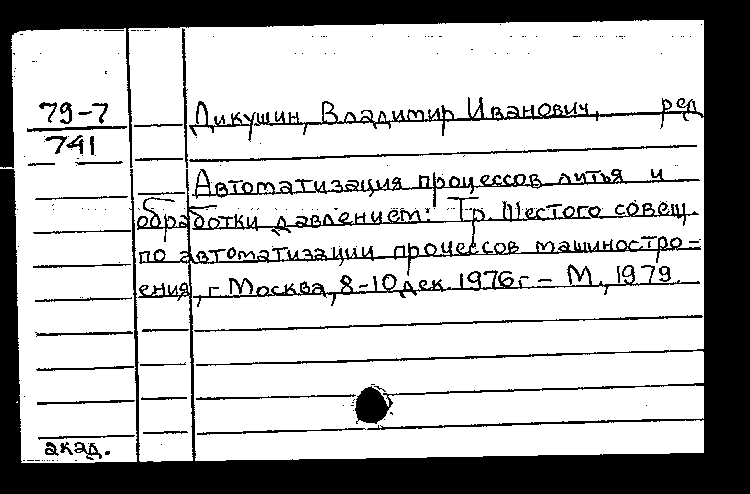 79-7
741
Дикушин, Владимир Иванович, ред
Автоматизация процессов литья и
обработки давлением: Тр. Шестого совещ.
по автоматизации процессов машиностро=
ения, г Москва, 8-10 дек. 1976г - М., 1979.
акад.